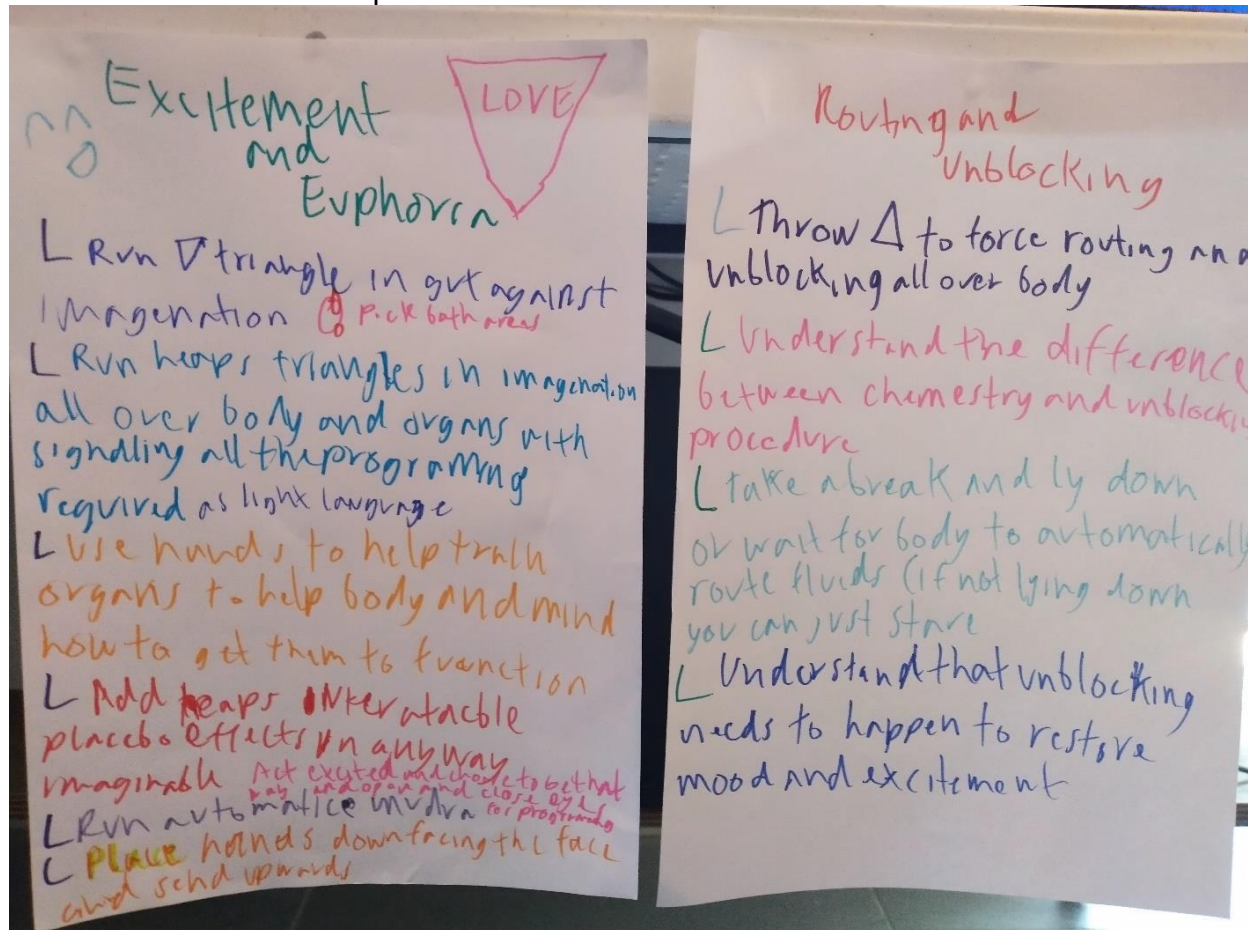 Excitement
and
Euphoria
LOVE
L Run ▽ triangle in gut against
imagenation Pick both areas
L Run heaps triangles in imagenation
all over body and organs with
signalling all the programing
required as light language
L Use hands to help train
organs to help body and mind
how to get them to function
L Add heaps
placebo effects in any way
imaginable Act excited and chose to be that
way and open and close eyes
for programing
L Run automatice mudra
L Place hands down facing the face
and send upwards
Routing and
Unblocking
L Throw △ to force routing and
unblocking all over body
L Understand the difference
between chemestry and
procedure
L take a break and ly down
or wait for body to automatically
route fluids (if not lying down
you can just stare
L Understand that unblocking
needs to happen to restore
mood and excitement